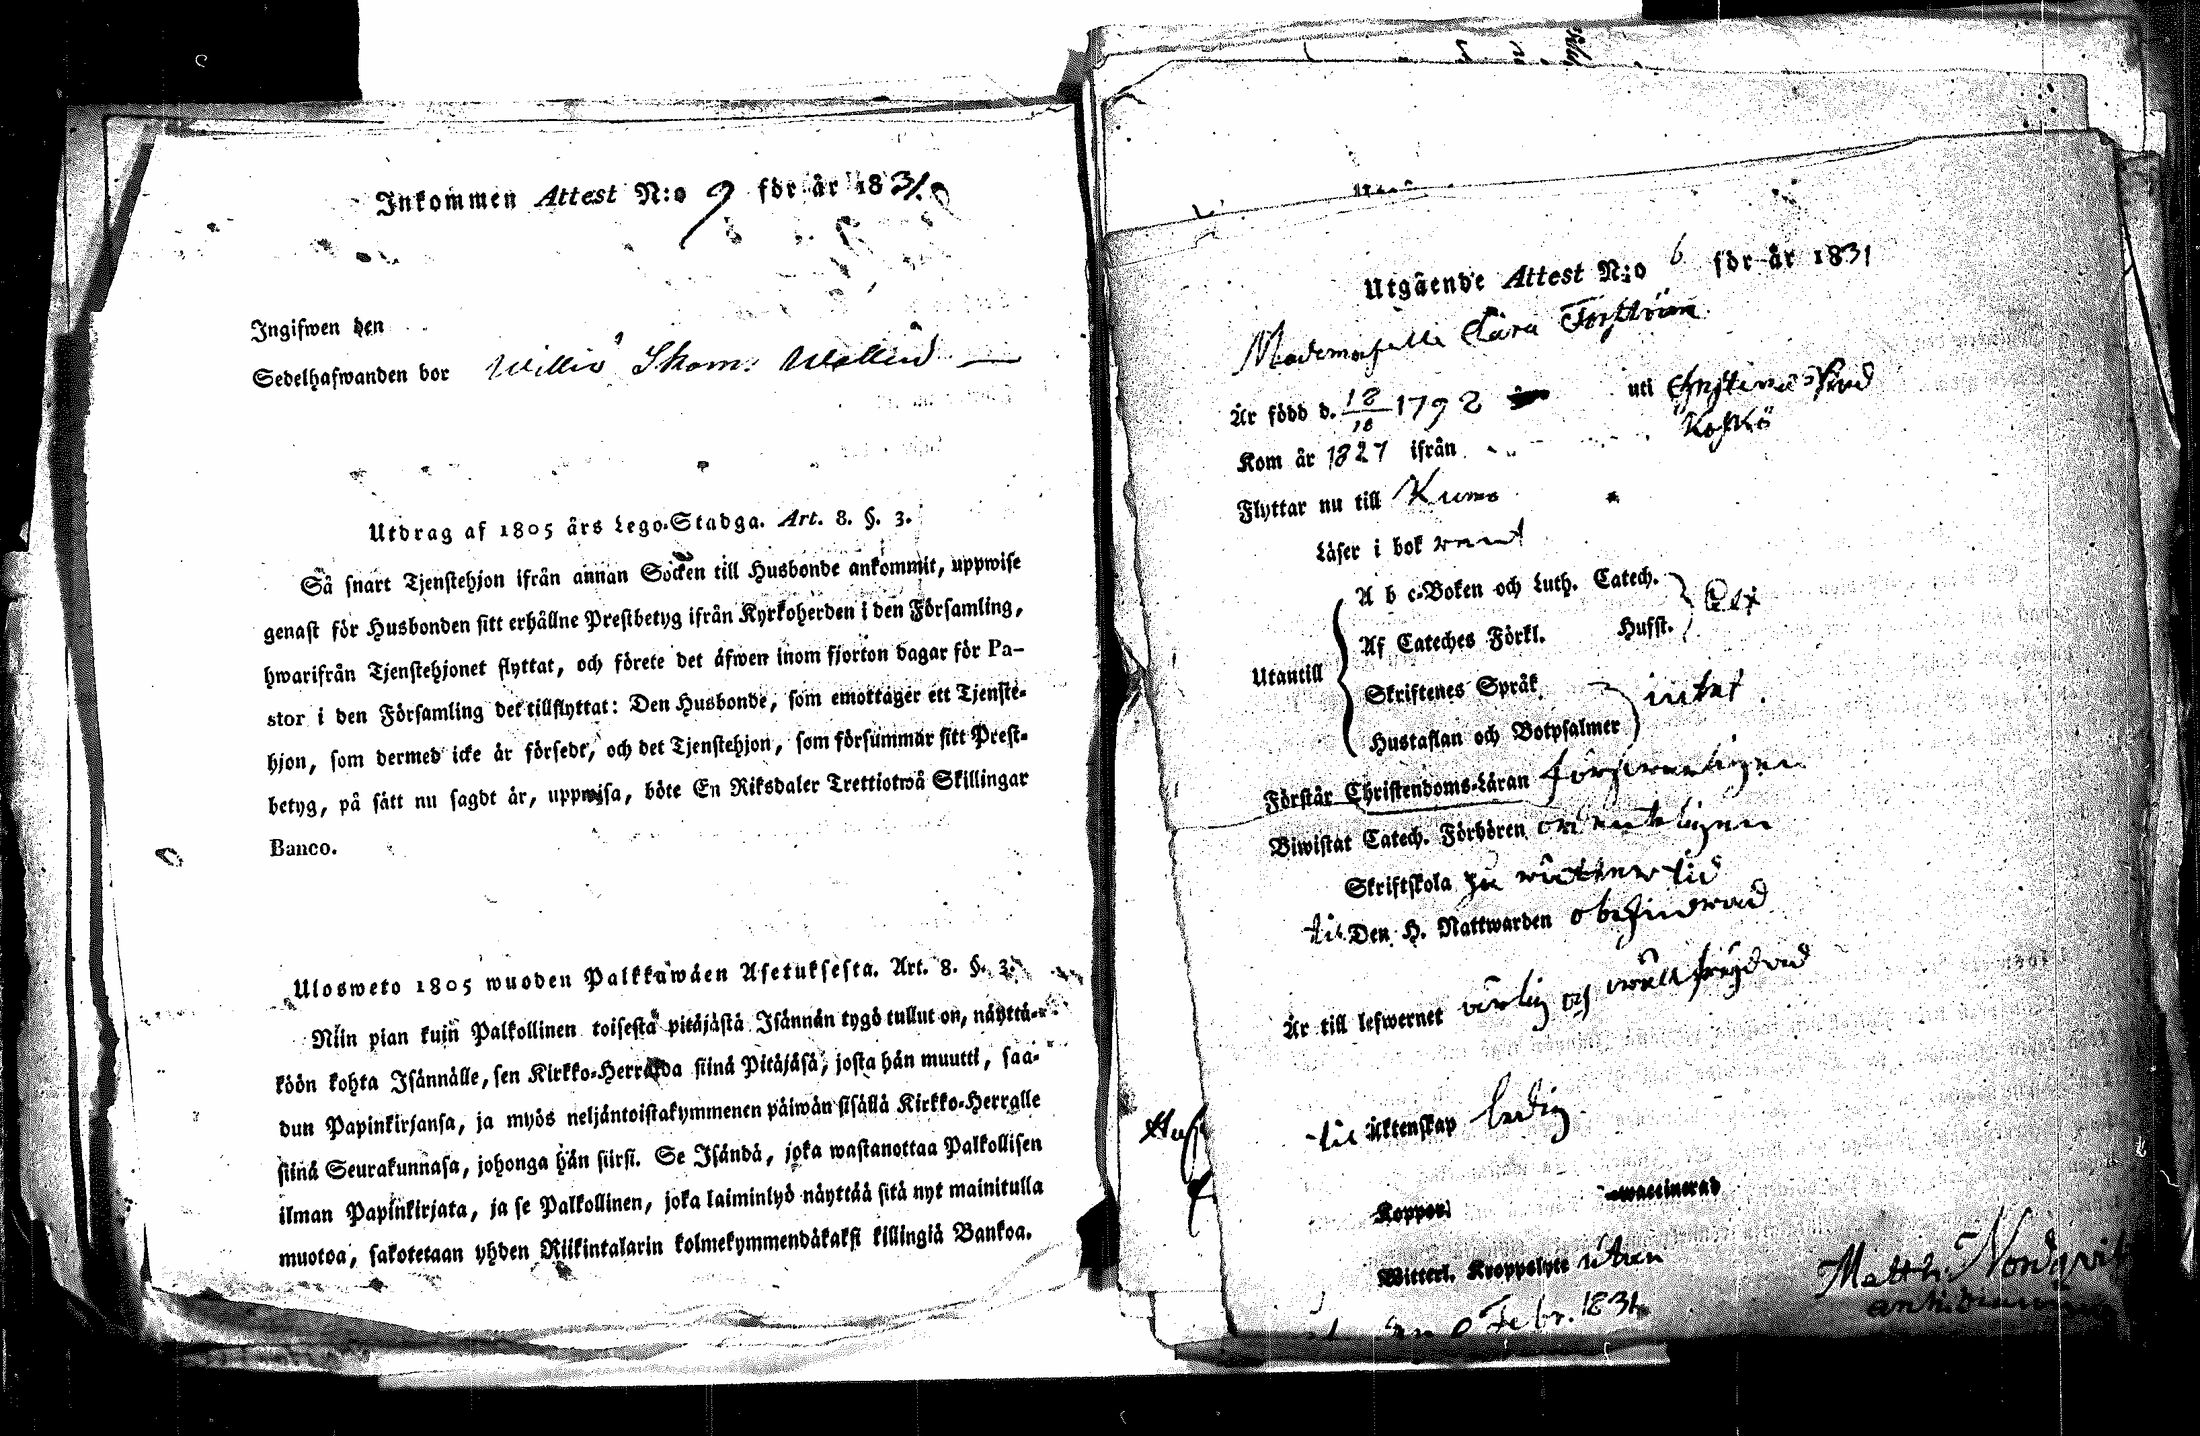 Inkommen Attest N:o 9 för år 1831.
Ingifwen den
Sedelhafwanden bor Willio Skom: Wallin
Utdrag af 1805 års Lego-Stadga. Art. 8. §. 3.
Så snart Tjenstehjon ifrån annan Socken till Husbonde ankommit, uppwise
genast för Husbonden sitt erhållne Prestbetyg ifrån Kyrkoherden i den Församling,
hwarifrån Tjenstehjonet flyttat, och förete det äfwen inom fjorton dagar för Pa-
stor i den Församling det tillflyttat: Den Husbonde, som emottager ett Tjenste-
hjon, som dermed icke är försedt, och det Tjenstehjon, som försummar sitt Prest-
betyg, på sätt nu sagdt är, uppwisa, böte En Riksdaler Trettiotwå Skillingar
Banco.
Ulosweto 1805 wuoden Palkkawäen Asetuksesta. Art. 8. §. 3.
Niin pian kuin Palkollinen toisesta pitäjästä Isännän tygö tullut on, näyttä-
köön kohta Isännälle, sen Kirkko-Herralda siinä Pitäjäsä, josta hän muutti, saa-
dun Papinkirjansa, ja myös neljäntoistakymmenen päiwän sisällä Kirkko-Herralle
siinä Seurakunnasa, johonga hän siirsi. Se Isändä, joka wastanottaa Palkollisen
ilman Papinkirjata, ja se Palkollinen, joka laiminlyö näyttää sitä nyt mainitulla
muotoa, sakotetaan yhden Riikintalarin kolmekymmendäkaksi killingiä Bankoa.
Utgående Attest N:o 6 för år 1831
Mademoiselle Clara Forsström
Är född d. 18/10 1792 uti Christinæstad
Kom år 1827 ifrån Koskö
Flyttar nu till Kumo
Läser i bok rent
A b c-Boken och Luth. Catech.
Af Cateches Förkl. Hufst.
Utantill
Skriftenes Språk intet.
Hustaflan och Botpsalmer
Förstår Christendoms-Läran försvarligen
Biwistat Catech. Förhören ordenteligen
Skriftskola i rättan tid
till Den H. Nattwarden obehindrad
Är till lefwernet ärlig och wälfrejdad
till Äktenskap ledig.
Koppor waccinerad
Witterl. Kroppslyte utan
Febr. 1831.
Matth. Nordqvist